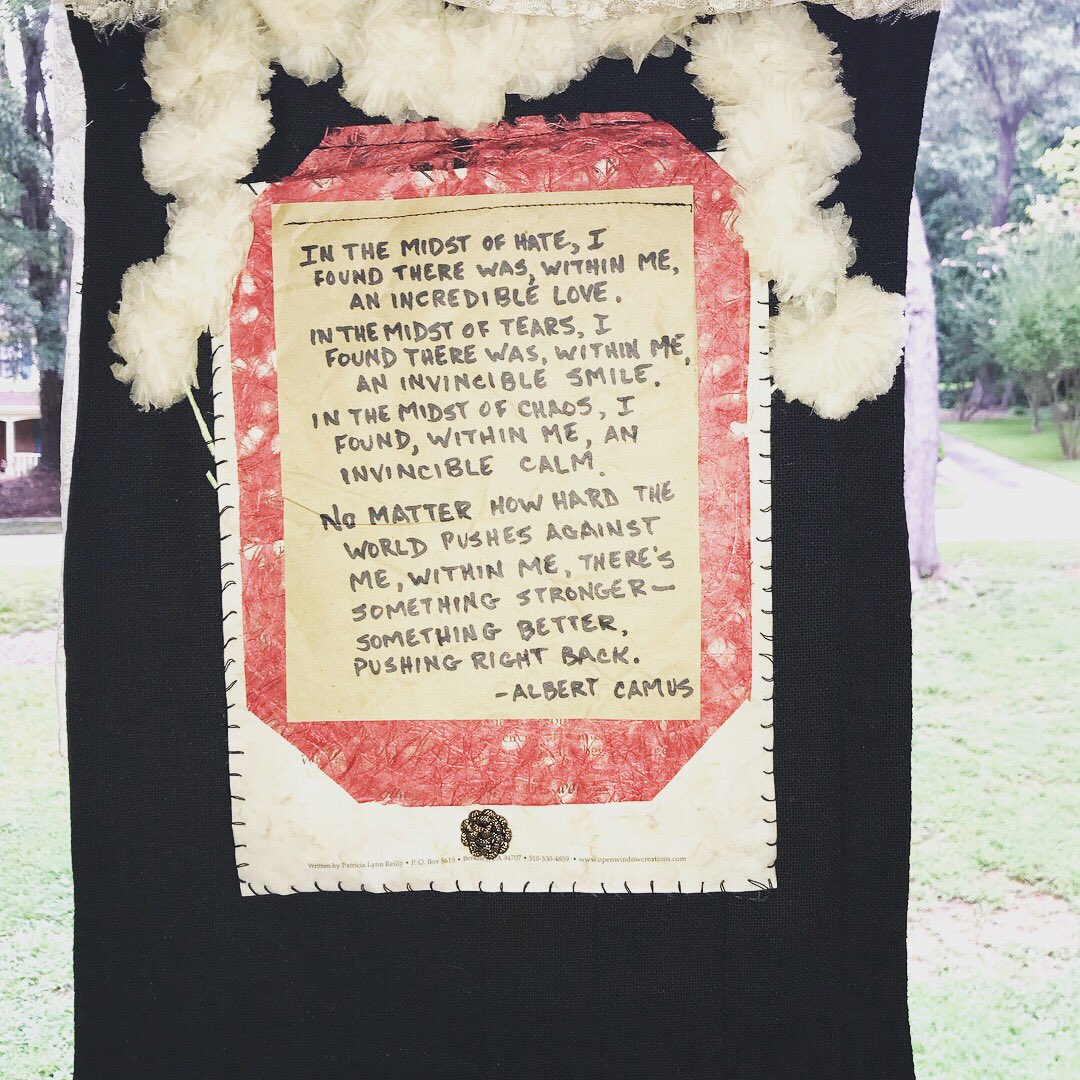 IN THE MIDST OF HATE, I
FOUND THERE WAS, WITHIN ME,
AN INCREDIBLE LOVE.
IN THE MIDST OF TEARS, I
FOUND THERE WAS, WITHIN ME,
AN INVINCIBLE SMILE.
IN THE MIDST OF CHAOS, I
FOUND, WITHIN ME, AN
INVINCIBLE CALM.
NO MATTER HOW HARD THE
WORLD PUSHES AGAINST
ME, WITHIN ME, THERE'S
SOMETHING STRONGER—
SOMETHING BETTER,
PUSHING RIGHT BACK.
-ALBERT CAMUS
Written by Patricia Lynn Reilly • P. O. Box 8615 • 94707 • 510-530-4859 • www.openwindowcreations.com